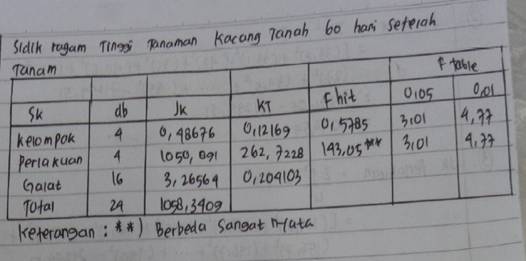 Sidik ragam Tinggi Tanaman Kacang Tanah 60 hari setelah
Tanam
Sk db Jk KT F hit F table
0,05 0,01
Kelompok 4 0,48676 0,12169 0,5785 3,01 4,77
Perlakuan 4 1050,891 262,7228 143,05** 3,01 4,77
Galat 16 3,26564 0,204103
Total 24 1058,3409
Keterangan : **) Berbeda Sangat Nyata